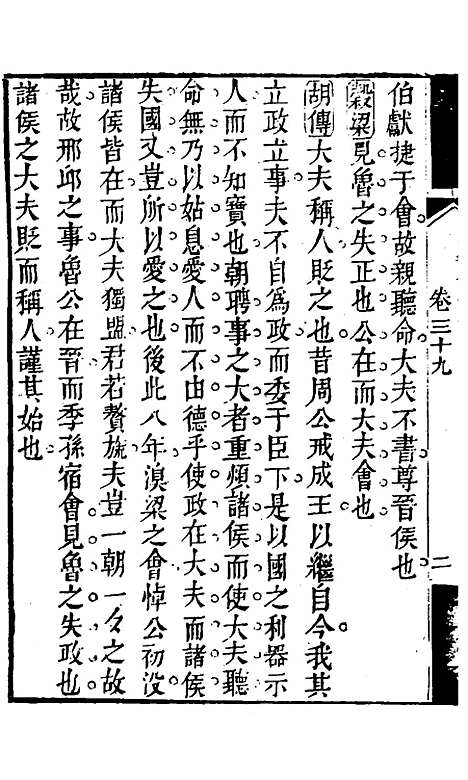 伯獻捷于會故親聽命大夫不書尊晉侯也
穀梁見魯之失正也公在而大夫會也
胡傳大夫稱人貶之也昔周公戒成王以繼自今我其
立政立事夫不自爲政而委于臣下是以國之利器示
人而不知寶也朝聘事之大者重煩諸侯而使大夫聽
命無乃以姑息愛人而不由德乎使政在大夫而諸侯
失國又豈所以愛之也後此八年溴梁之會悼公初没
諸侯皆在而大夫獨盟君若贅旒夫豈一朝一夕之故
哉故邢邱之事魯公在晉而季孫宿會見魯之失政也
諸侯之大夫貶而稱人謹其始也
卷三十九
二